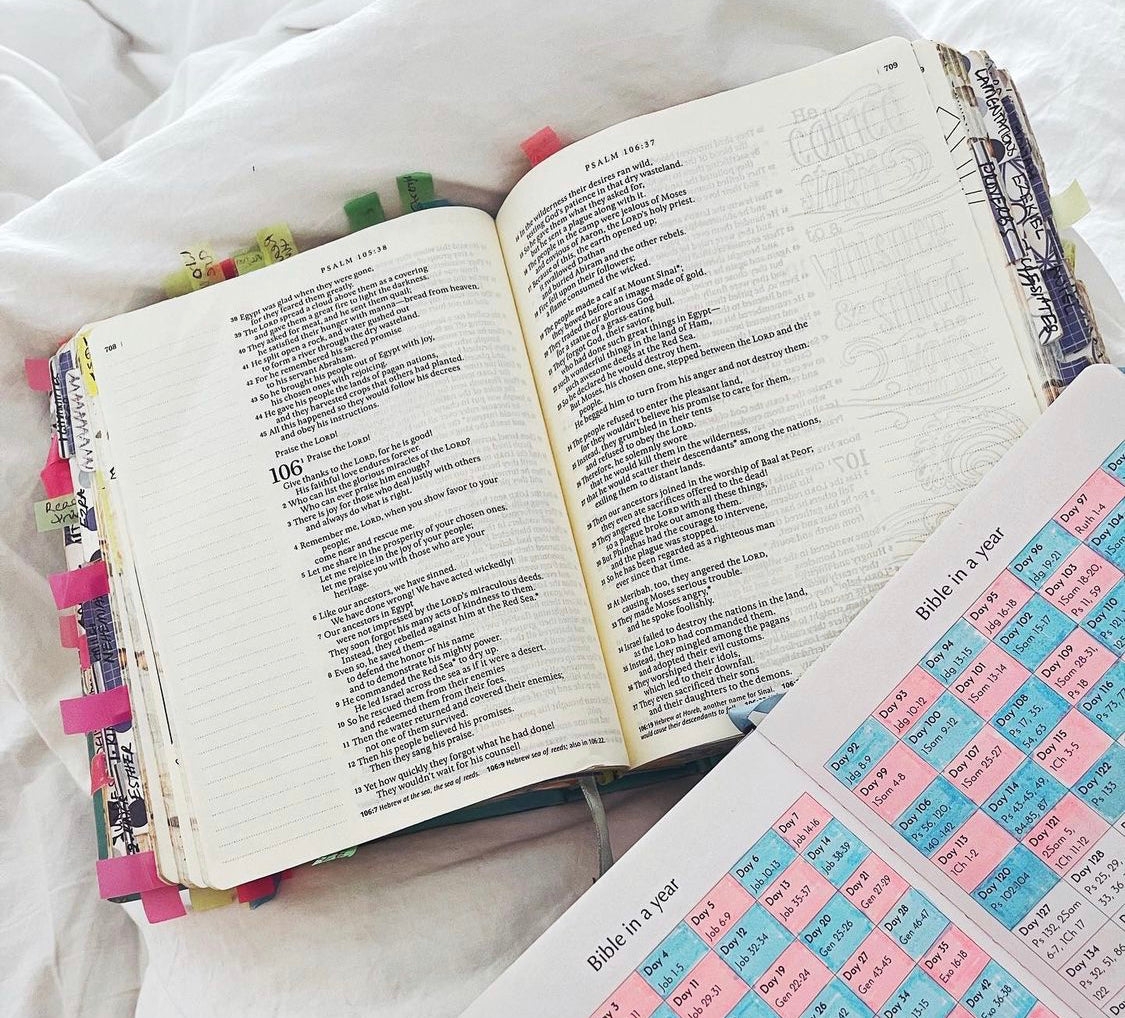 708
PSALM 105:38
38 Egypt was glad when they were gone,
for they feared them greatly.
39 The LORD spread a cloud above them as a covering
and gave them a great fire to light the darkness.
40 They asked for meat, and he sent them quail;
he satisfied their hunger with manna—bread from heaven.
41 He split open a rock, and water gushed out
to form a river through the dry wasteland.
42 For he remembered his sacred promise
to his servant Abraham.
43 So he brought his people out of Egypt with joy,
his chosen ones with rejoicing.
44 He gave his people the lands of pagan nations,
and they harvested crops that others had planted.
45 All this happened so they would follow his decrees
and obey his instructions.
Praise the LORD!
106 1 Praise the LORD!
Give thanks to the LORD, for he is good!
His faithful love endures forever.
2 Who can list the glorious miracles of the LORD?
Who can ever praise him enough?
3 There is joy for those who deal justly with others
and always do what is right.
4 Remember me, LORD, when you show favor to your
people;
come near and rescue me.
5 Let me share in the prosperity of your chosen ones.
Let me rejoice in the joy of your people;
let me praise you with those who are your
heritage.
6 Like our ancestors, we have sinned.
We have done wrong! We have acted wickedly!
7 Our ancestors in Egypt
were not impressed by the LORD's miraculous deeds.
They soon forgot his many acts of kindness to them.
Instead, they rebelled against him at the Red Sea.*
8 Even so, he saved them—
to defend the honor of his name
and to demonstrate his mighty power.
9 He commanded the Red Sea* to dry up.
He led Israel across the sea as if it were a desert.
10 So he rescued them from their enemies
and redeemed them from their foes.
11 Then the water returned and covered their enemies;
not one of them survived.
12 Then his people believed his promises.
Then they sang his praise.
13 Yet how quickly they forgot what he had done!
They wouldn't wait for his counsel!
106:7 Hebrew at the sea, the sea of reeds. 106:9 Hebrew sea of reeds; also in 106:22.
PSALM 106:37
709
14 In the wilderness their desires ran wild,
testing God's patience in that dry wasteland.
15 So he gave them what they asked for,
but he sent a plague along with it.
16 The people in the camp were jealous of Moses
and envious of Aaron, the LORD's holy priest.
17 Because of this, the earth opened up;
it swallowed Dathan
and buried Abiram and the other rebels.
18 Fire fell upon their followers;
a flame consumed the wicked.
19 The people made a calf at Mount Sinai*;
they bowed before an image made of gold.
20 They traded their glorious God
for a statue of a grass-eating bull.
21 They forgot God, their savior,
who had done such great things in Egypt—
22 such wonderful things in the land of Ham,
such awesome deeds at the Red Sea.
23 So he declared he would destroy them.
But Moses, his chosen one, stepped between the LORD and the
people.
He begged him to turn from his anger and not destroy them.
24 The people refused to enter the pleasant land,
for they wouldn't believe his promise to care for them.
25 Instead, they grumbled in their tents
and refused to obey the LORD.
26 Therefore, he solemnly swore
that he would kill them in the wilderness,
27 that he would scatter their descendants* among the nations,
exiling them to distant lands.
28 Then our ancestors joined in the worship of Baal at Peor;
they even ate sacrifices offered to the dead!
29 They angered the LORD with all these things,
so a plague broke out among them.
30 But Phinehas had the courage to intervene,
and the plague was stopped.
31 So he has been regarded as a righteous man
ever since that time.
32 At Meribah, too, they angered the LORD,
causing Moses serious trouble.
33 They made Moses angry,*
and he spoke foolishly.
34 Israel failed to destroy the nations in the land,
as the LORD had commanded them.
35 Instead, they mingled among the pagans
and adopted their evil customs.
36 They worshiped their idols,
which led to their downfall.
37 They even sacrificed their sons
and their daughters to the demons.
106:19 Hebrew at Horeb, another name for Sinai.
LAMENTATIONS
EZEKIEL
PROVERBS
ESTHER
NEHEMIAH
Bible in a year
Day 97
Ruth 1-4
Day 96
Jdg 19-21
Day 103
1Sam 18-20,
Ps 11, 59
Day 95
Jdg 16-18
Day 102
1Sam 15-17
Day 94
Jdg 13-15
Day 101
1Sam 13-14
Day 109
1Sam 28-31,
Ps 18
Day 93
Jdg 10-12
Day 100
1Sam 9-12
Day 108
Ps 17, 35,
54, 63
Day 115
1Ch 3-5
Day 92
Jdg 8-9
Day 99
1Sam 4-8
Day 107
1Sam 25-27
Day 114
Ps 43-45, 49,
84-85, 87
Day 122
Ps 133
Day 106
Ps 56, 120,
140-142
Day 113
1Ch 1-2
Day 121
2Sam 5,
1Ch 11-12
Day 120
Ps 102-104
Day 128
Day 127
Ps 132, 2Sam
6-7, 1Ch 17
Day 134
Bible in a year
Day 7
Job 14-16
Day 6
Job 10-13
Day 14
Job 38-39
Day 5
Job 6-9
Day 13
Job 35-37
Day 21
Gen 27-29
Day 4
Job 1-5
Day 12
Job 32-34
Day 20
Gen 25-26
Day 28
Gen 46-47
Day 11
Job 29-31
Day 19
Gen 22-24
Day 27
Gen 43-45
Day 35
Exo 16-18
Day 34
Day 42
Exo 36-38